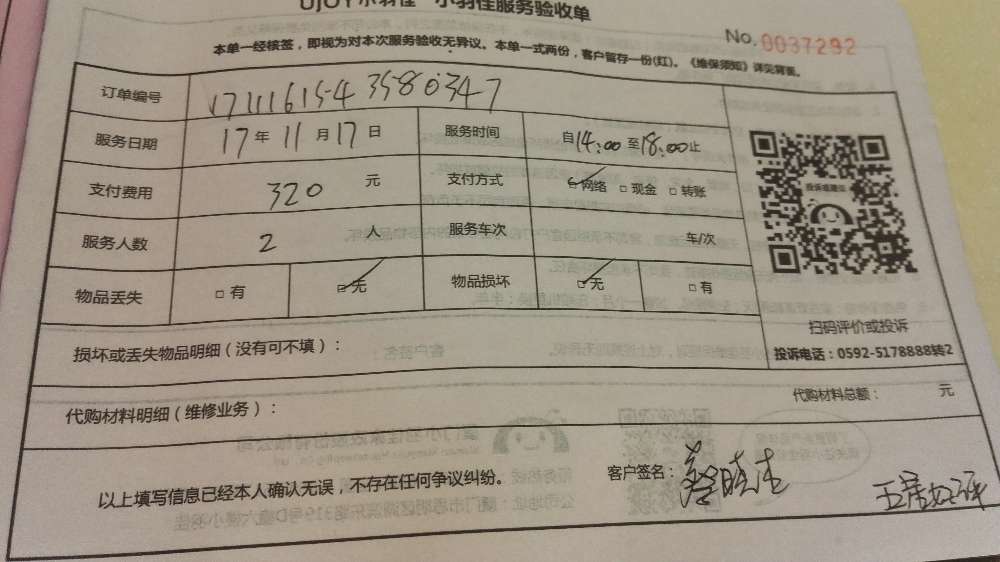 小羽佳服务验收单
No.0037292
本单一经核签，即视为对本次服务验收无异议。本单一式两份，客户暂存一份(红)。《维保须知》详见背面。
订单编号 171116154 3580347
服务日期 17年11月17日 服务时间 自14:00至18:00止
支付费用 320 元 支付方式 网络 □现金 □转账
服务人数 2 人 服务车次 车/次
物品丢失 □有 无 物品损坏 无 □有
投诉或建议
扫码评价或投诉
投诉电话：0592-5178888转2
损坏或丢失物品明细（没有可不填）：
代购材料明细（维修业务）： 代购材料总额： 元
以上填写信息已经本人确认无误，不存在任何争议纠纷。 客户签名：